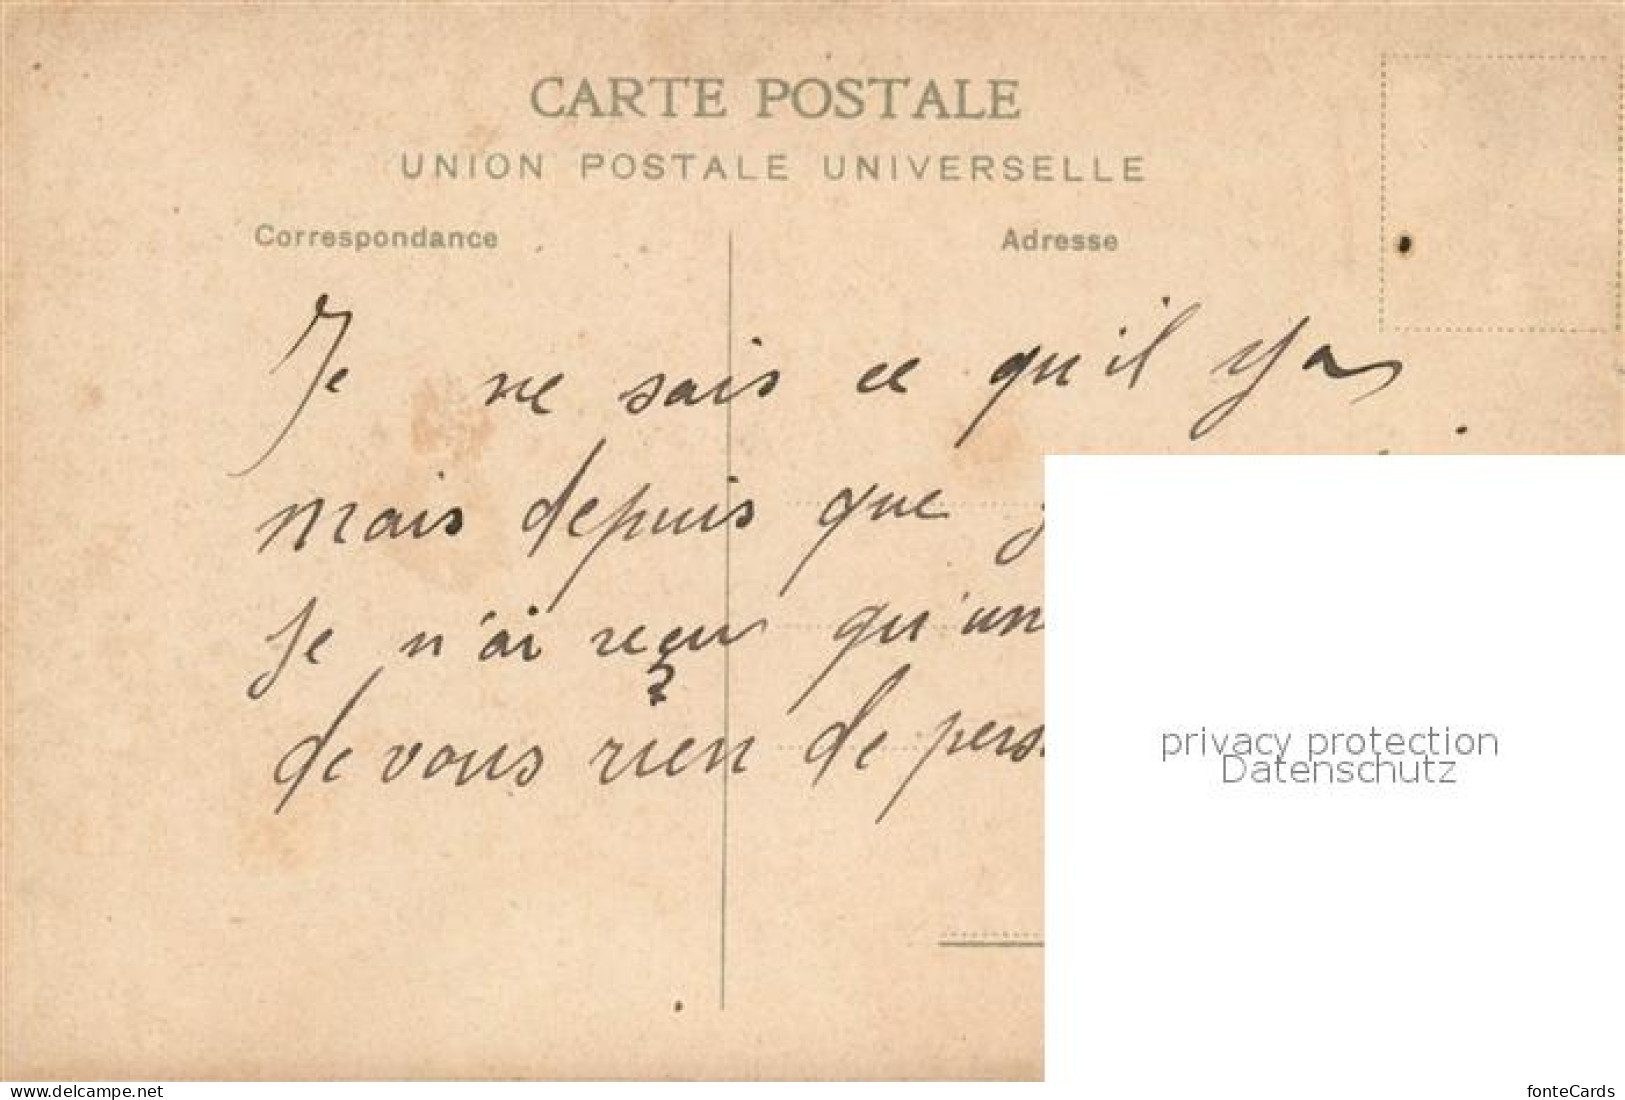 CARTE POSTALE
UNION POSTALE UNIVERSELLE
Correspondance
Adresse
Je ne sais ce qu'il y a
mais depuis que
Je n'ai reçu qu'un
de vous rien de pers
privacy protection
Datenschutz
www.delcampe.net
fonteCards